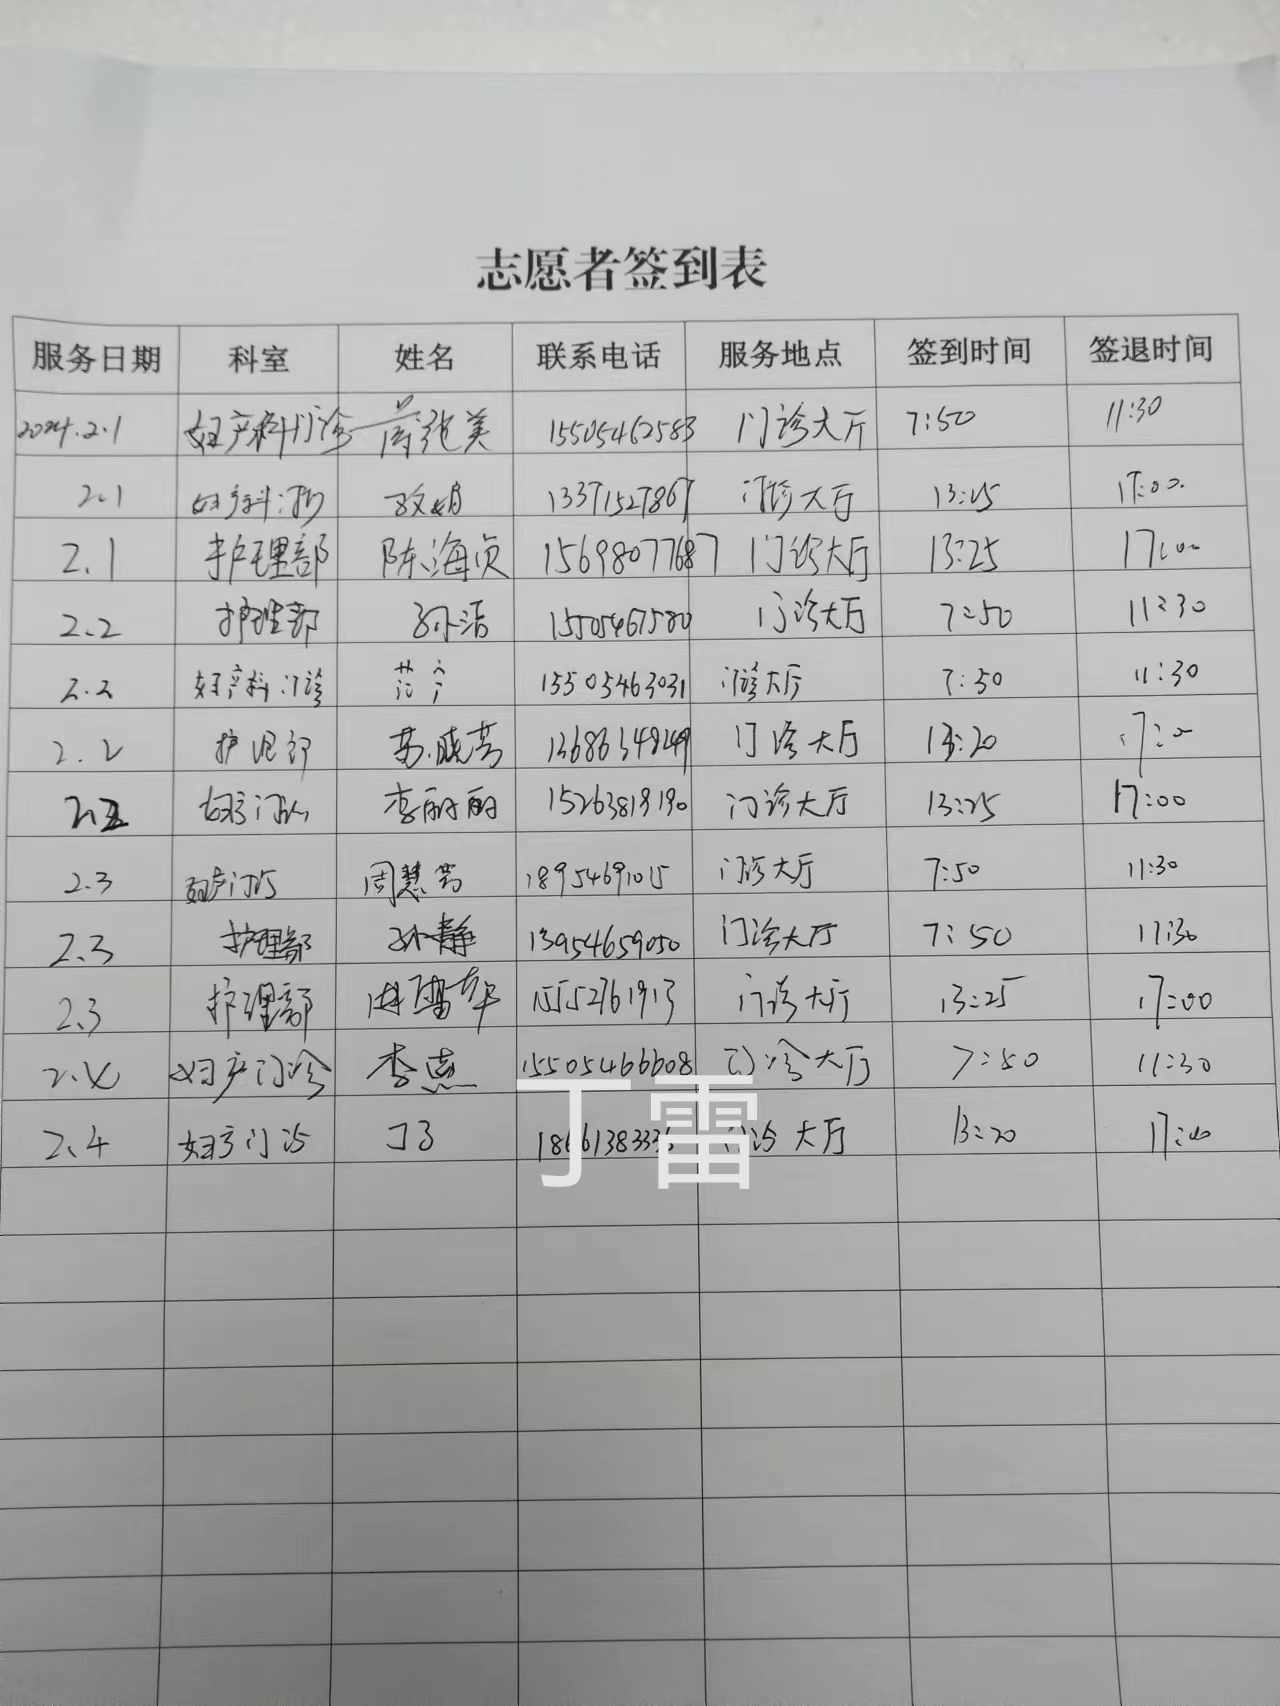 志愿者签到表
服务日期 科室 姓名 联系电话 服务地点 签到时间 签退时间
2024.2.1 妇产科门诊 美 15505462583 门诊大厅 7:50 11:30
2.1 妇产科门诊 13371527867 门诊大厅 13:25 17:00
2.1 护理部 陈海贞 15698077687 门诊大厅 13:25 17:00
2.2 护理部 孙洁 15505467580 门诊大厅 7:50 11:30
2.2 妇产科门诊 15505463031 门诊大厅 7:50 11:30
2.2 护理部 苏晓芳 13686348249 门诊大厅 13:20 17:00
2.2 妇产门诊 李丽丽 15263819190 门诊大厅 13:25 17:00
2.3 妇产门诊 周慧芳 18954691015 门诊大厅 7:50 11:30
2.3 护理部 孙静 13954659050 门诊大厅 7:50 11:30
2.3 护理部 15552761913 门诊大厅 13:25 17:00
2.4 妇产门诊 李燕 15505466608 门诊大厅 7:50 11:30
2.4 妇产门诊 门诊大厅 13:20 17:00
丁雷